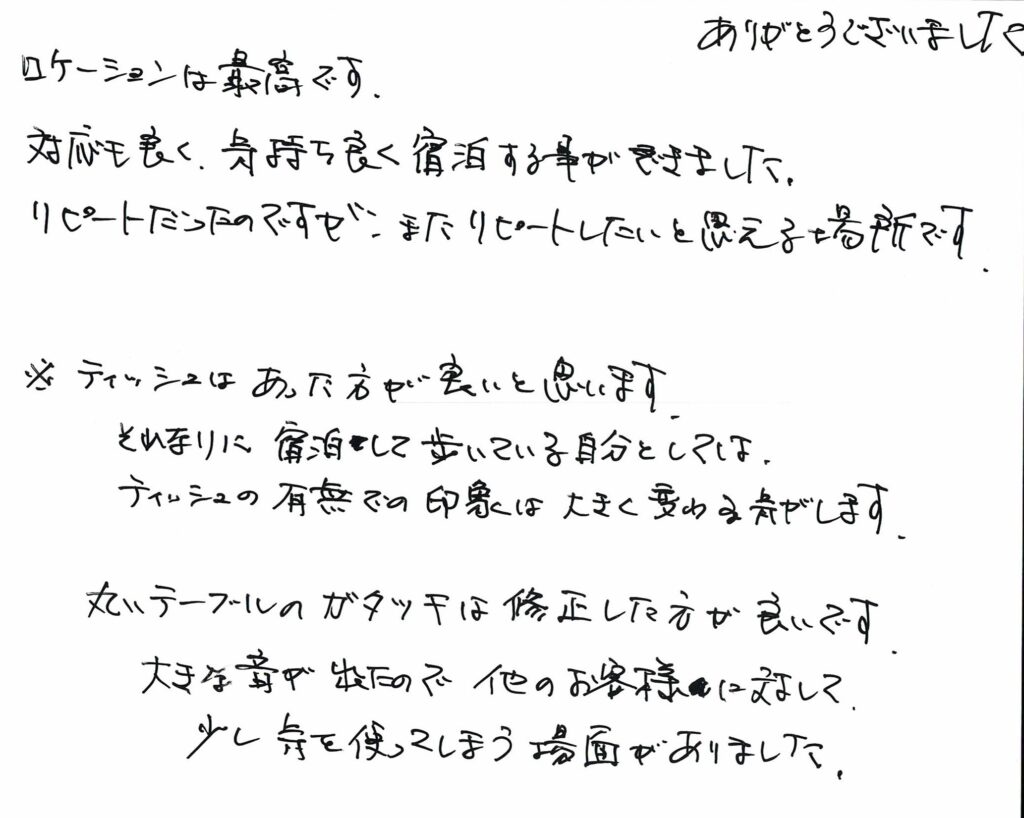 ありがとうございました
ロケーションは最高です.
対応も良く、気持ち良く宿泊する事ができました.
リピートだったのですが、またリピートしたいと思える場所です.
※ ティッシュはあった方が良いと思います.
それなりに宿泊して歩いている自分としては、
ティッシュの有無での印象は大きく変わる気がします.
丸いテーブルのガタツキは修正した方が良いです.
大きな音が出たので他のお客様に対して、
少し気を使ってしまう場面がありました.